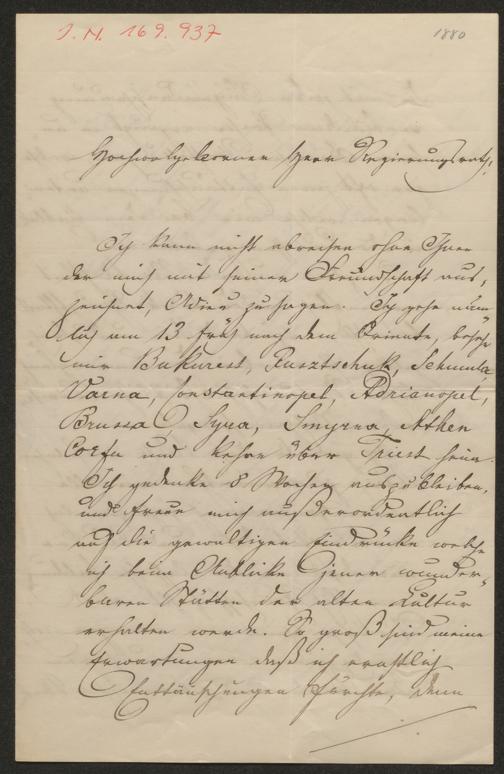 J. N. 169.937
1880
Hochwolgeborener Herr Regierungsrath!
Ich kann nicht abreisen ohne Ihnen
der mich mit seiner Freundschaft aus-
zeichnet, Adieu zu sagen. Ich gehe näm-
lich am 13 früh nach dem Oriente, besehe
mir Bukarest, Rusztschuk, Schumla,
Varna, Constantinopel, Adrianopel,
Brussa, Syra, Smyrna, Athen
Corfu und kehre über Triest heim.
Ich gedenke 8 Wochen auszubleiben,
und freue mich außerordentlich
auf die gewaltigen Eindrücke welche
ich beim Anblicke jener wunder-
baren Stätten der alten Kultur
erhalten werde. So groß sind meine
Erwartungen daß ich ernstlich
Enttäuschungen fürchte, denn